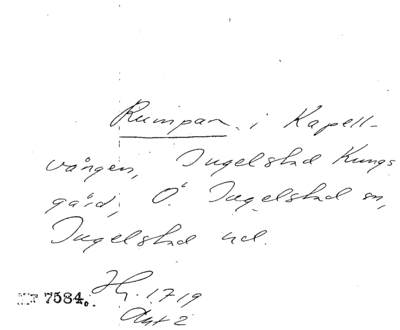 Rumpan i Kapell-
vången, Ingelstad Kungs
gård, Ö. Ingelstad sn,
Ingelstad hd.
Hg. 1719
MT 7584. Akt 2